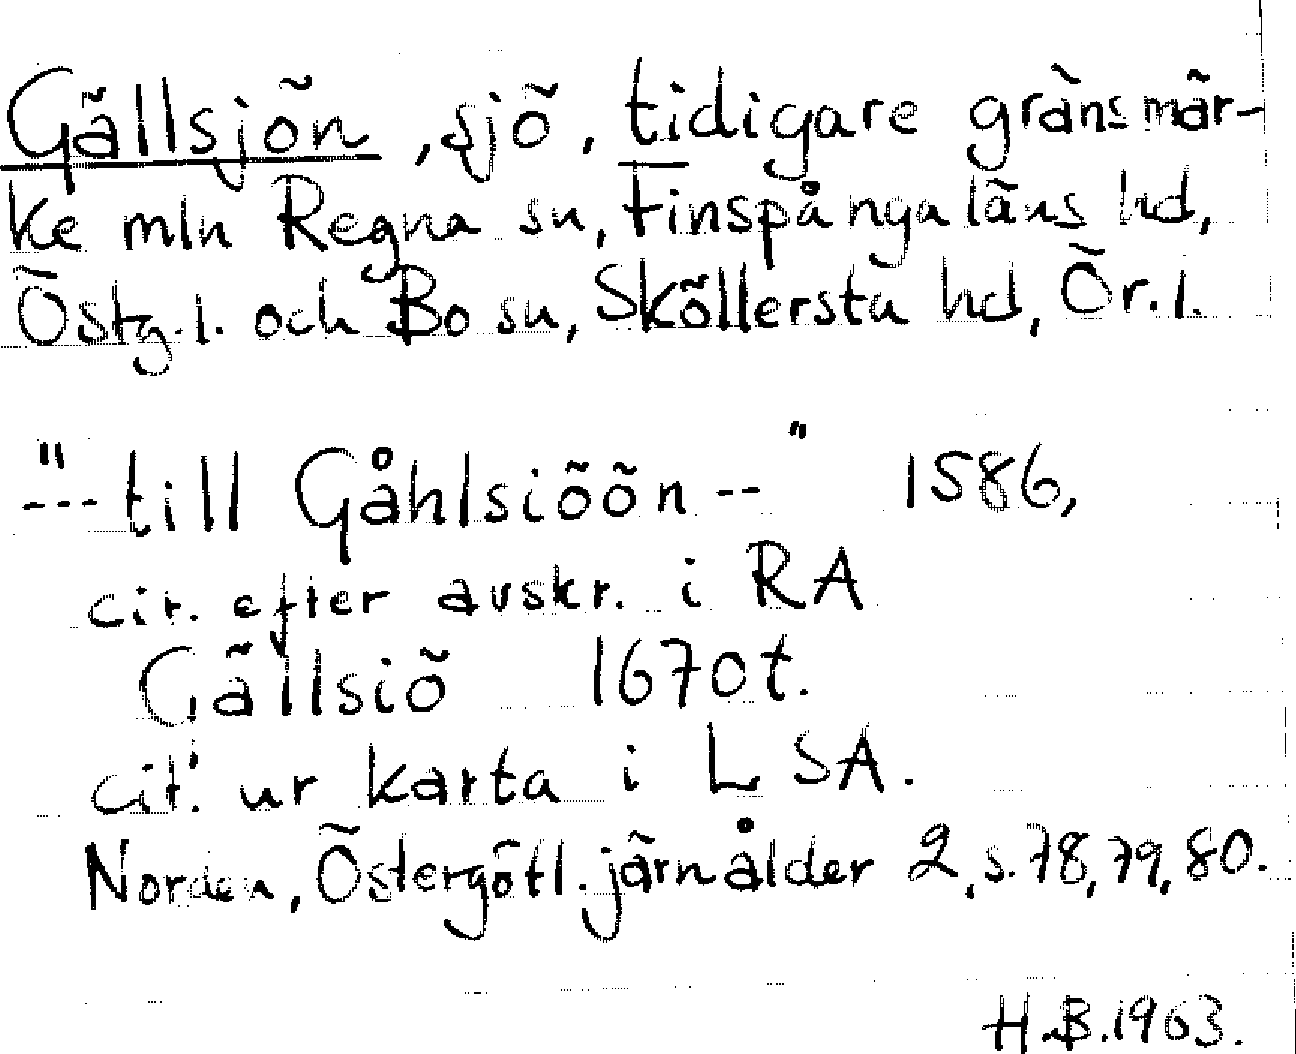 Gällsjön, sjö, tidigare gränsmär-
ke mln Regna sn, Finspånga läns hd,
Östg.l. och Bo sn, Sköllersta hd, Ör.l.
"--- till Gåhlsiöön --" 1586,
cit. efter avskr. i RA
Gällsiö 1670 t.
cit. ur karta i LSA.
Norden, Östergötl. järnålder 2, s. 78, 79, 80.
H.B. 1963.